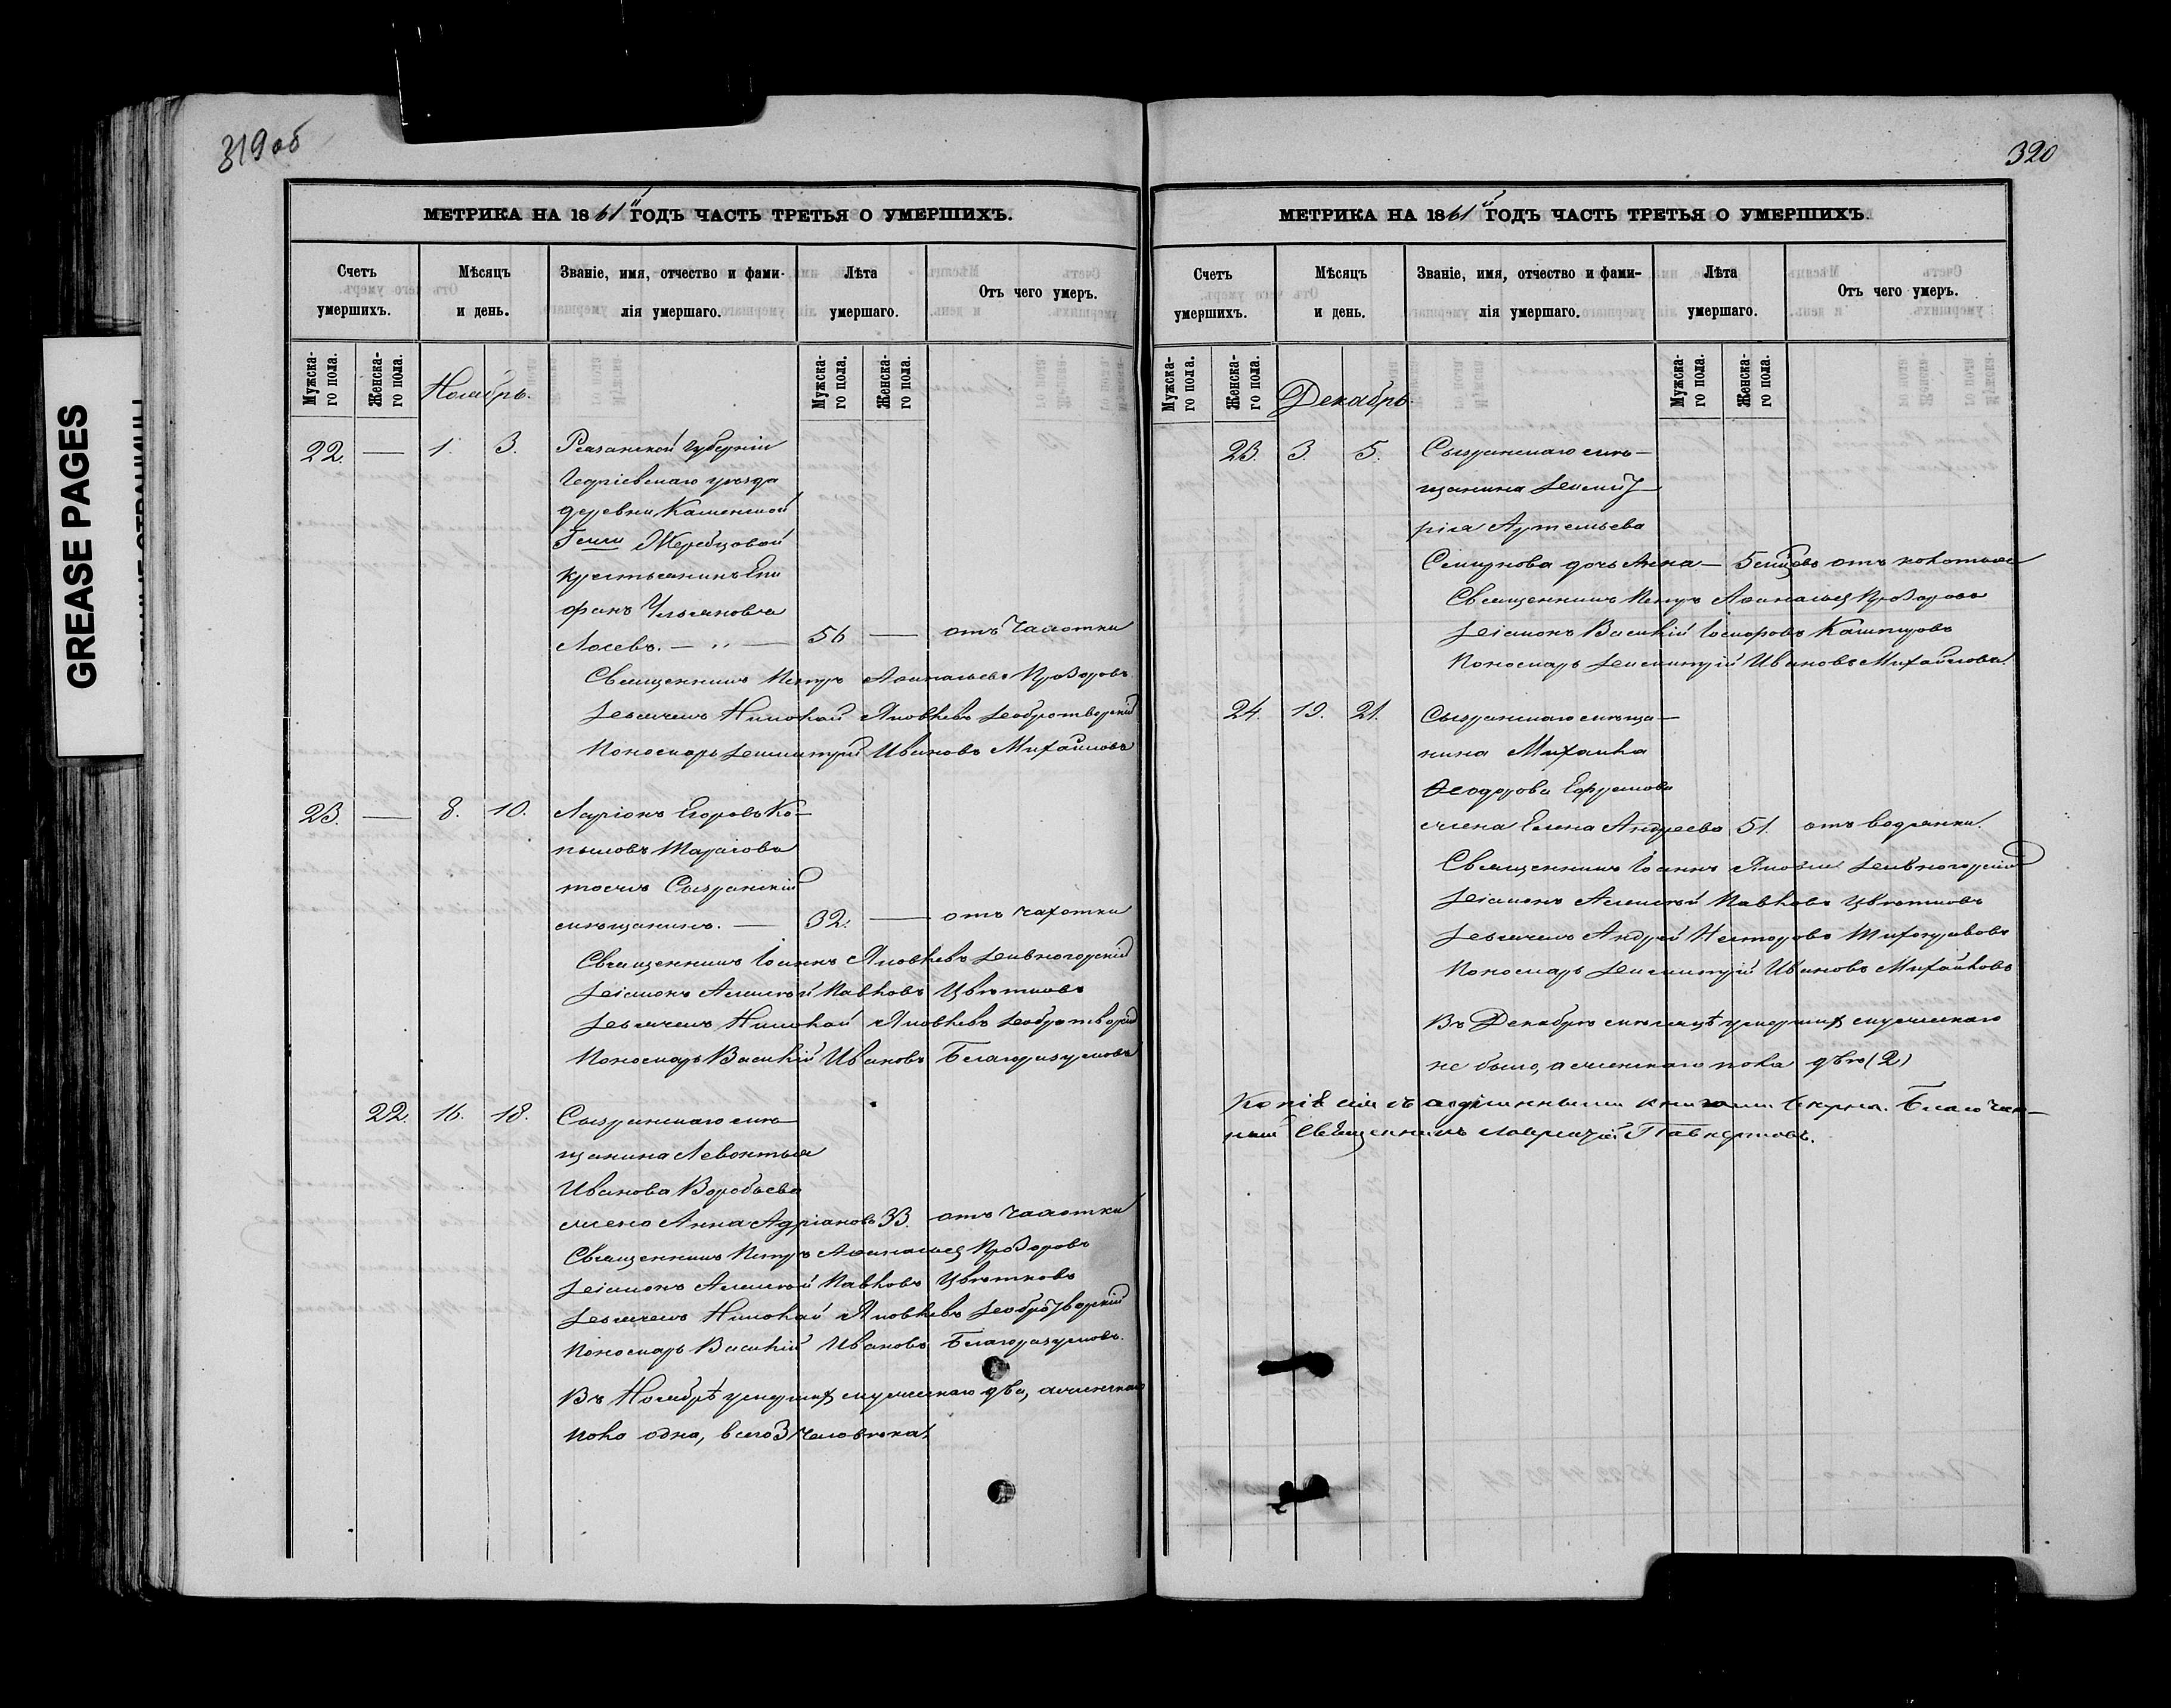 GREASE PAGES
319 об
МЕТРИКА НА 1861й ГОДЪ ЧАСТЬ ТРЕТЬЯ О УМЕРШИХЪ.
Счетъ умершихъ.
Мѣсяцъ и день.
Званіе, имя, отчество и фами-
лія умершаго.
Лѣта умершаго.
Отъ чего умеръ.
Мужска-
го пола.
Женска-
го пола.
Ноябрь.
Мужска-
го пола.
Женска-
го пола.
22. — 1. 3. Рязанской Губерніи
уѣзда
деревни Каменской
Жеребцовой
крестьянинъ Епи
фанъ Ульяновъ
Лосевъ. — 56 — отъ Чахотки
Священникъ Петръ Афанасьевъ Прозоровъ
Дьячекъ Николай Яковлевъ Добротворскій
Пономарь Димитрій Ивановъ Михайловъ
23. — 8. 10. Ларіонъ Егоровъ Ко-
пыловъ Тарасовъ
тожъ Сызранскій
мѣщанинъ. — 32. — отъ чахотки
Священникъ Іоаннъ Яковлевъ Дивногорскій
Діаконъ Алексѣй Павловъ Цвѣтковъ
Дьячекъ Николай Яковлевъ Добротворскій
Пономарь Василій Ивановъ Благоразумовъ
22. 16. 18. Сызранскаго мѣ-
щанина Левонтья
Иванова Воробьева
жена Анна Адріанова 33. отъ Чахотки
Священникъ Петръ Афанасьевъ Прозоровъ
Діаконъ Алексѣй Павловъ Цвѣтковъ
Дьячекъ Николай Яковлевъ Добротворскій
Пономарь Василій Ивановъ Благоразумовъ.
Въ Ноябрѣ умершихъ мужскаго два, а женскаго
пола одна, всего 3 человѣка.
320
МЕТРИКА НА 1861й ГОДЪ ЧАСТЬ ТРЕТЬЯ О УМЕРШИХЪ.
Счетъ умершихъ.
Мѣсяцъ и день.
Званіе, имя, отчество и фами-
лія умершаго.
Лѣта умершаго.
Отъ чего умеръ.
Мужска-
го пола.
Женска-
го пола.
Декабрь.
Мужска-
го пола.
Женска-
го пола.
23. 3. 5. Сызранскаго мѣ-
щанина Димит-
рія Артемьева
Смирнова дочь Анна — отъ колотья
Священникъ Петръ Афанасьевъ Прозоровъ
Діаконъ Василій Кашпировъ
Пономарь Димитрій Ивановъ Михайловъ.
24. 19. 21. Сызранскаго мѣща-
нина Михаила
Ѳеодорова Ефремова
жена Елена Андреева 51. отъ водянки.
Священникъ Іоаннъ Яковлев Дивногорскій
Діаконъ Алексѣй Павловъ Цвѣтковъ
Дьячекъ Андрей Несторовъ Тихонравовъ
Пономарь Димитрій Ивановъ Михайловъ
Въ Декабрѣ мѣсяцѣ умершихъ мужскаго
не было, а женскаго пола двѣ (2)
Копія сія съ подлинными книгами вѣрна. Благочин-
ный Священникъ